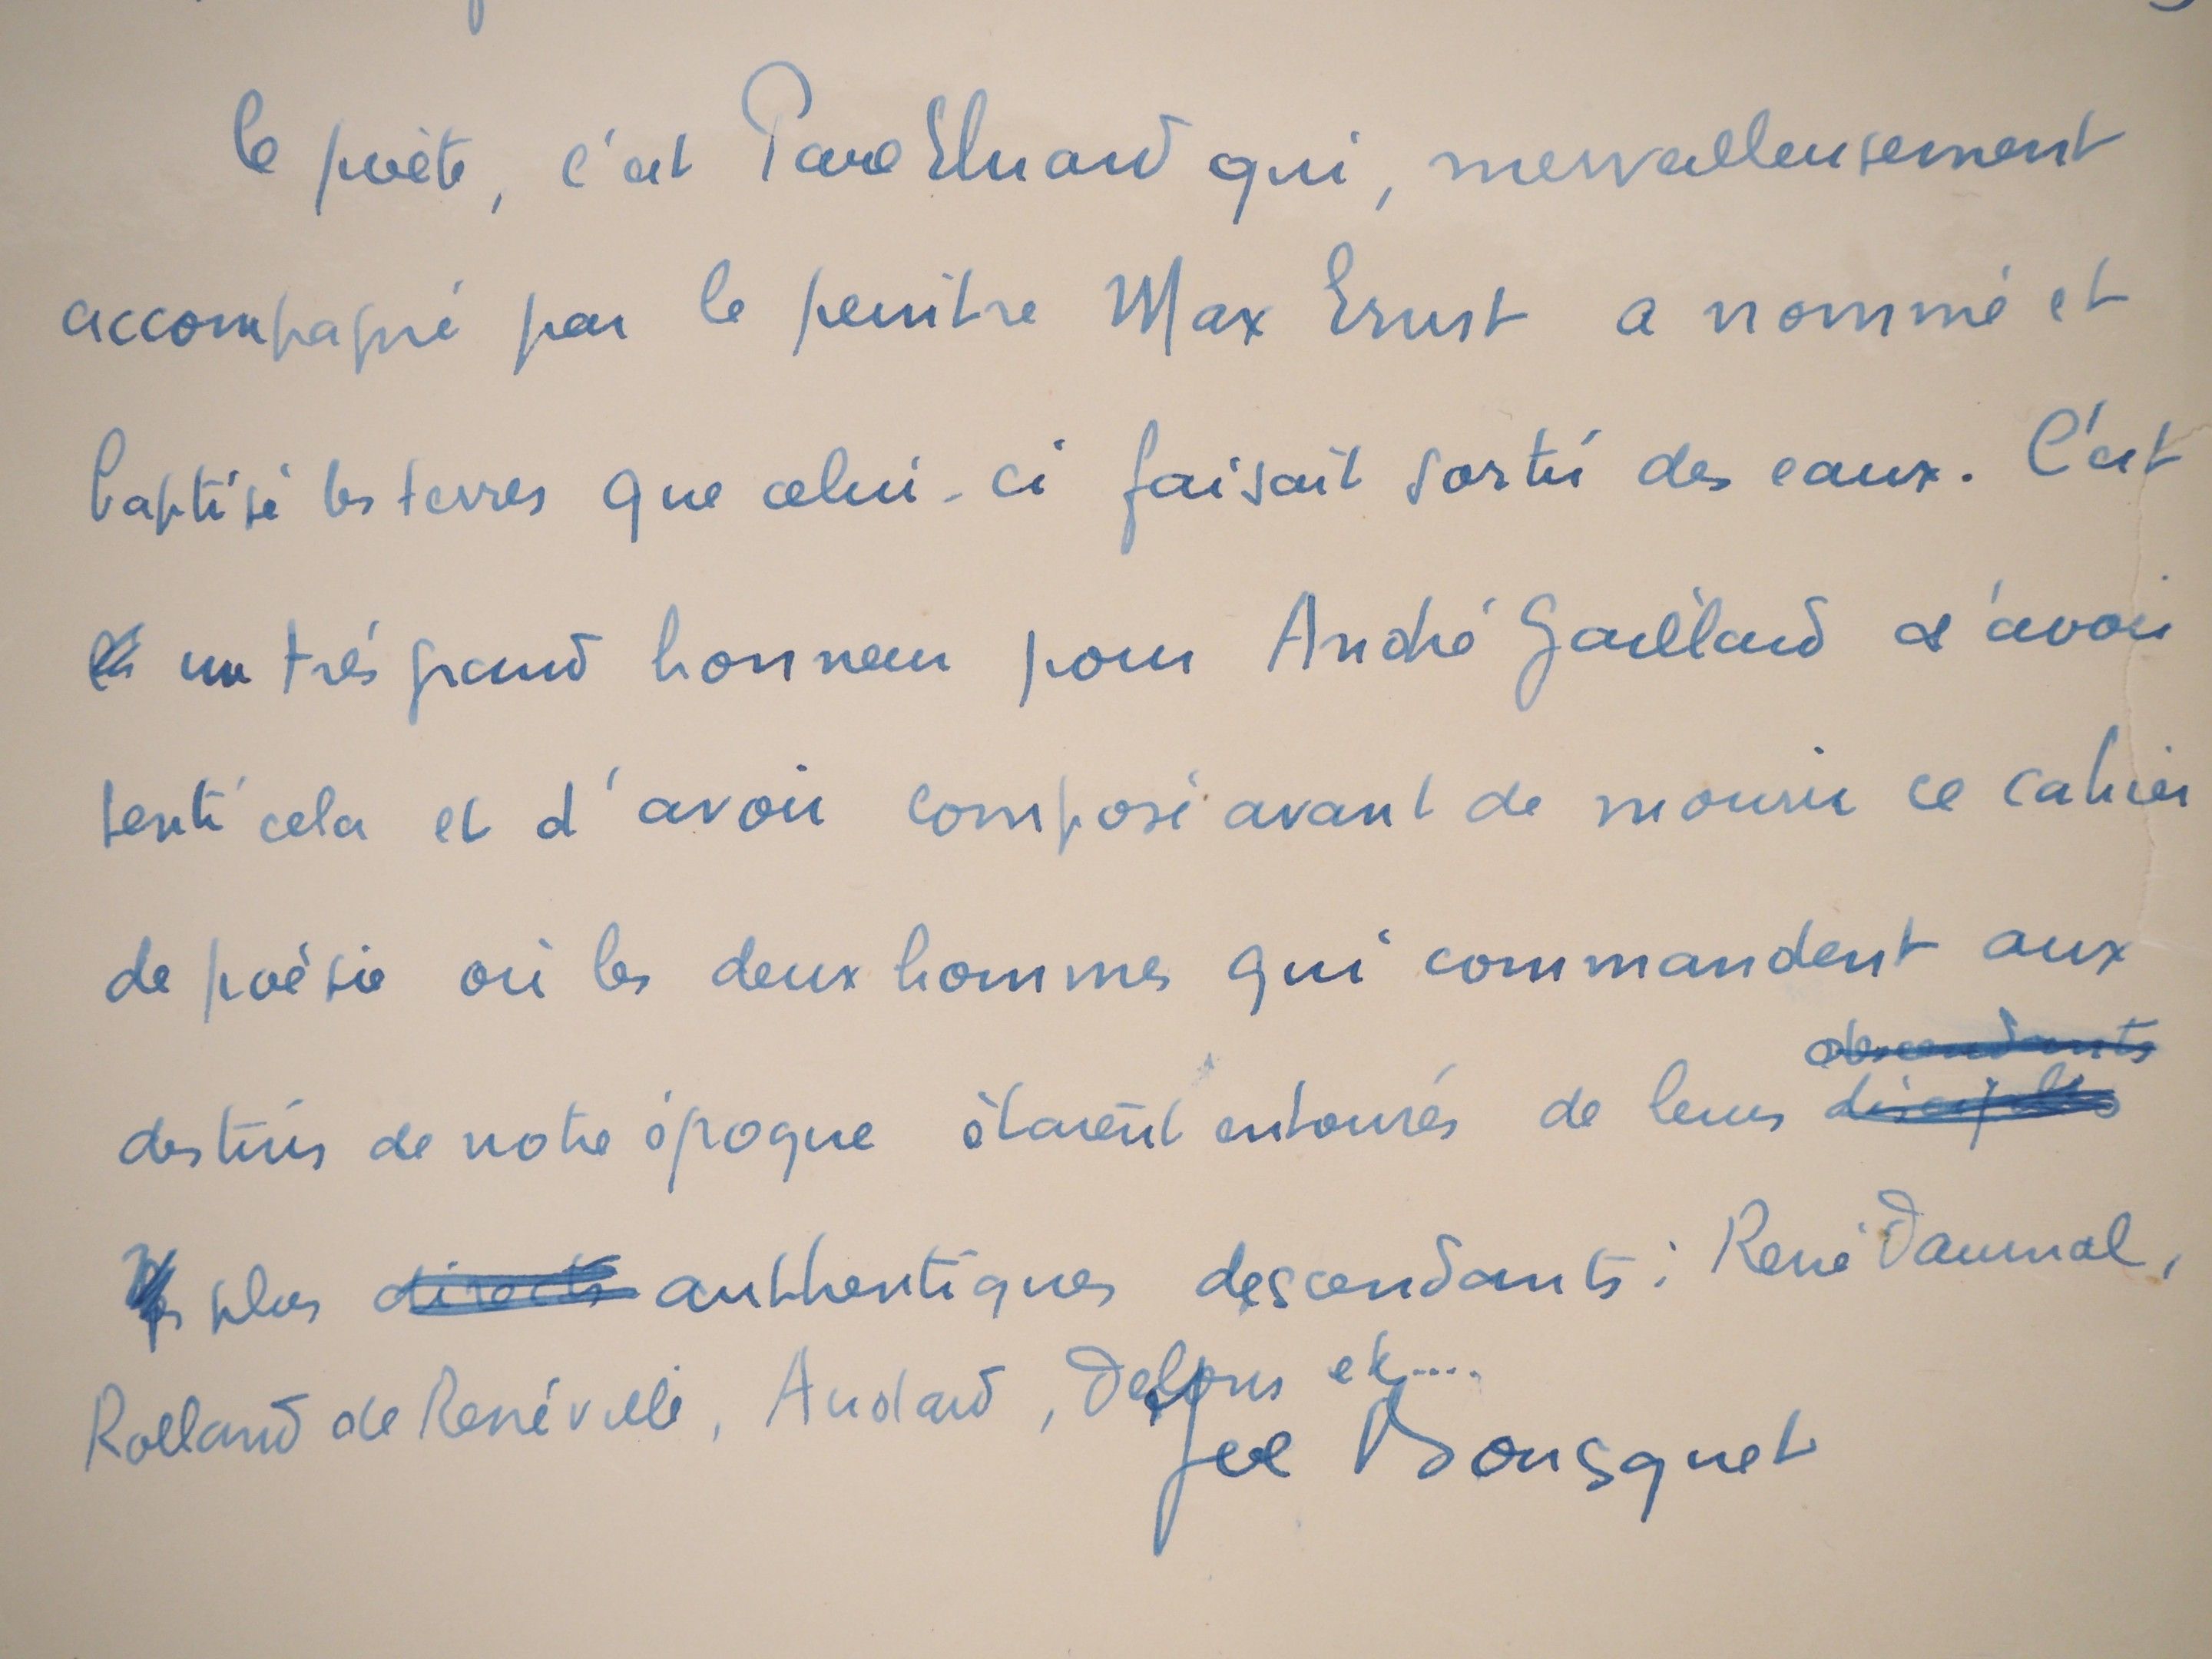 le poète, c'est Paul Eluard qui, merveilleusement
accompagné par le peintre Max Ernst a nommé et
baptisé les terres que celui-ci faisait sortir des eaux. C'est
un très grand honneur pour André Gaillard d'avoir
senti cela et d'avoir composé avant de mourir ce cahier
de poésie où les deux hommes qui commandent aux
descendants
destins de notre époque étaient entourés de leurs disciples
plus directs authentiques descendants : René Daumal,
Rolland de Renéville, Audard, Delons etc....
Joe Bousquet